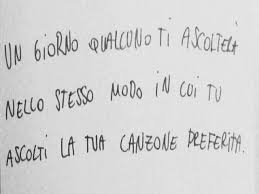 UN GIORNO QUALCUNO TI ASCOLTERÀ
NELLO STESSO MODO IN CUI TU
ASCOLTI LA TUA CANZONE PREFERITA.